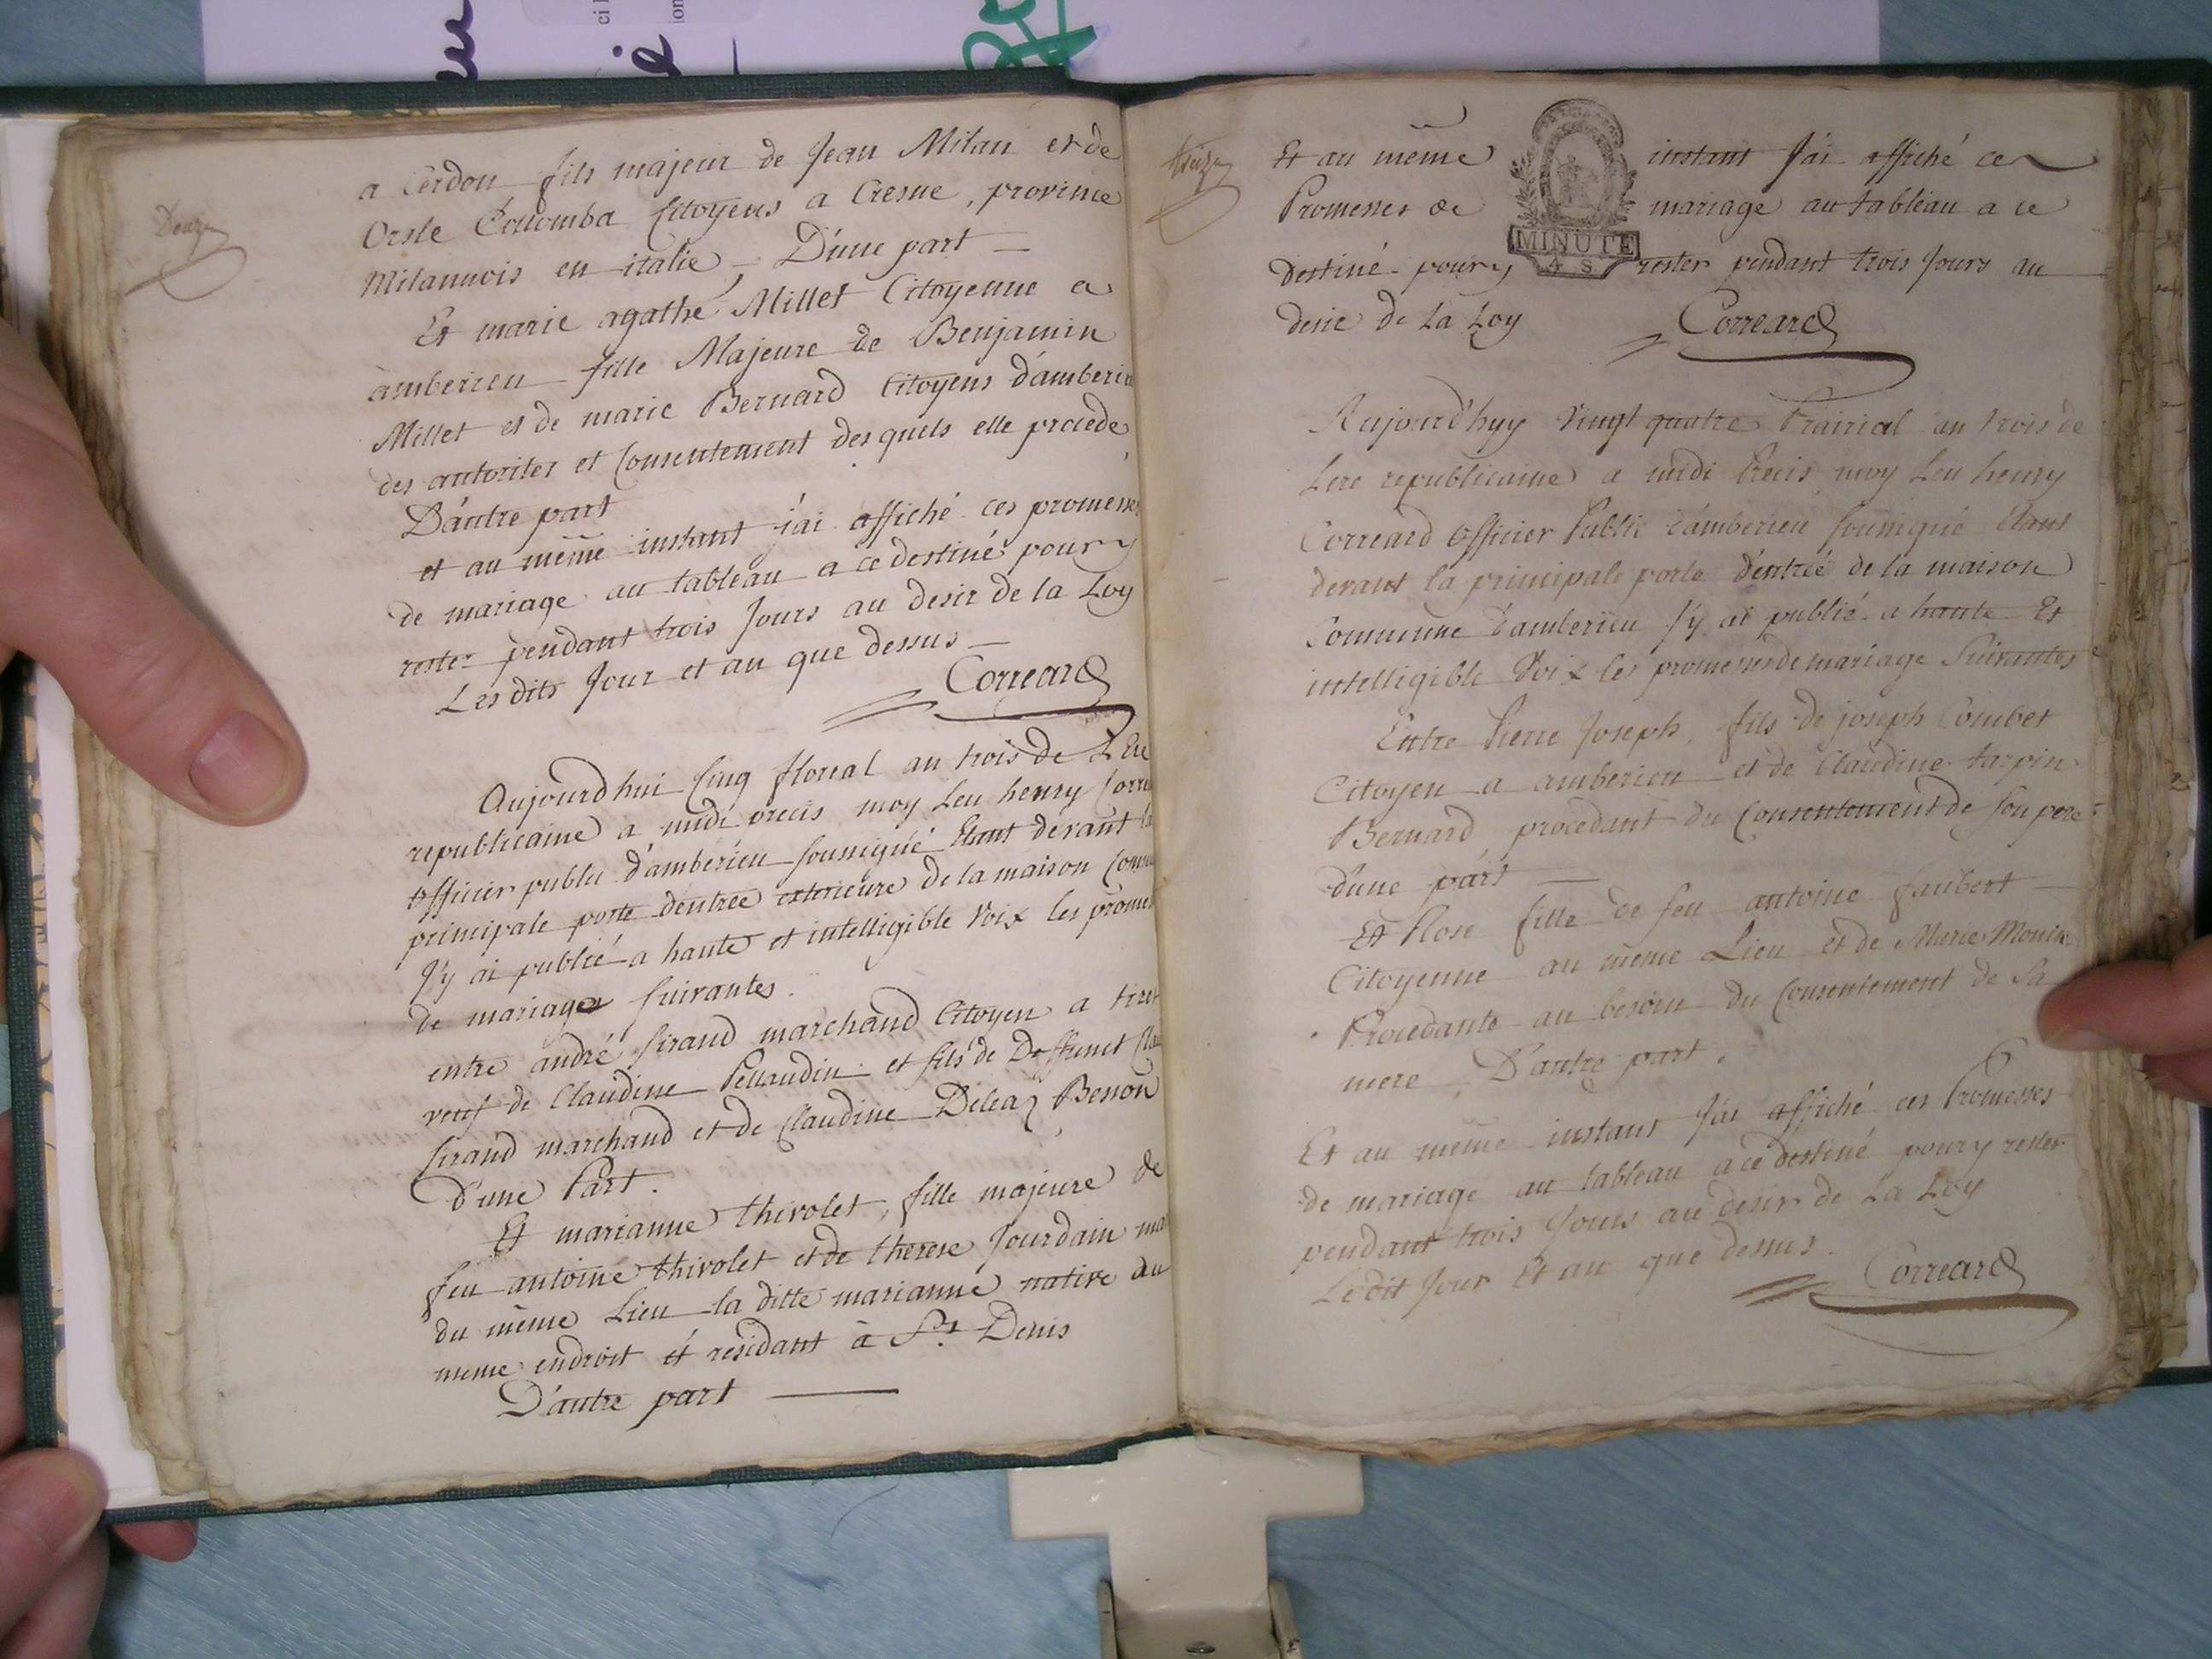 Douze
a Cerdon fils majeur de Jean Milan et de
Orsle Colomba Citoyens a Cresne, province
Milannois en italie, D'une part
Et marie agathe Millet Citoyenne a
amberieu fille Majeure de Benjamin
Millet et de marie Bernard Citoyens d'amberieu
des autorites et Consentement des quels elle procede
D'autre part
et au même instant j'ai affiché ces promesses
de mariage au tableau a ce destiné pour y
rester pendant trois Jours au desir de la Loy
Les dits Jour et an que dessus
Correard
Aujourd'hui Cinq floreal an trois de L'Ere
republicaine a midi precis moy Leu henry Corre
officier public d'amberieu soussigné Etant devant la
principale porte d'entrée exterieure de la maison Commu
J'y ai publié a haute et intelligible Voix les promes
de mariages suivantes.
entre andré Sirand marchand Citoyen a
veuf de Claudine Pellaudin et fils de Deffunct
Sirand marchand et de Claudine Beston
D'une Part.
Et marianne thivolet, fille majeure de
feu antoine thivolet et de therese Jourdain
du même Lieu la ditte marianne native du
meme endroit et residant à St. Denis
D'autre part
treize
Et au même instant J'ai affiché ces
Promesses de mariage au tableau a ce
destiné pour y rester pendant trois Jours au
desir de La Loy
Correard
MINUTE
4 S
Aujourd'huy Vingt quatre Prairial an trois de
Lere republicaine a midi Precis moy Leu henry
Correard officier Public d'amberieu soussigné Etant
devant la principale porte d'entrée de la maison
Commune d'amberieu J'y ai publié a haute Et
intelligible Voix les promesses de mariage Suivantes
Entre Pierre Joseph, fils de joseph Combet
Citoyen a amberieu et de Claudine tarpin
Bernard, procedant du Consentement de son pere
d'une part
Et Rose fille de feu antoine gaubert
Citoyenne au même Lieu et de Marie Monin
Procedante au besoin du Consentement de Sa
mere, D'autre part.
Et au même instant J'ai affiché ces Promesses
de mariage au tableau a ce destiné pour y rester
pendant trois Jours au desir de La Loy
Le dit Jour Et an que dessus.
Correard